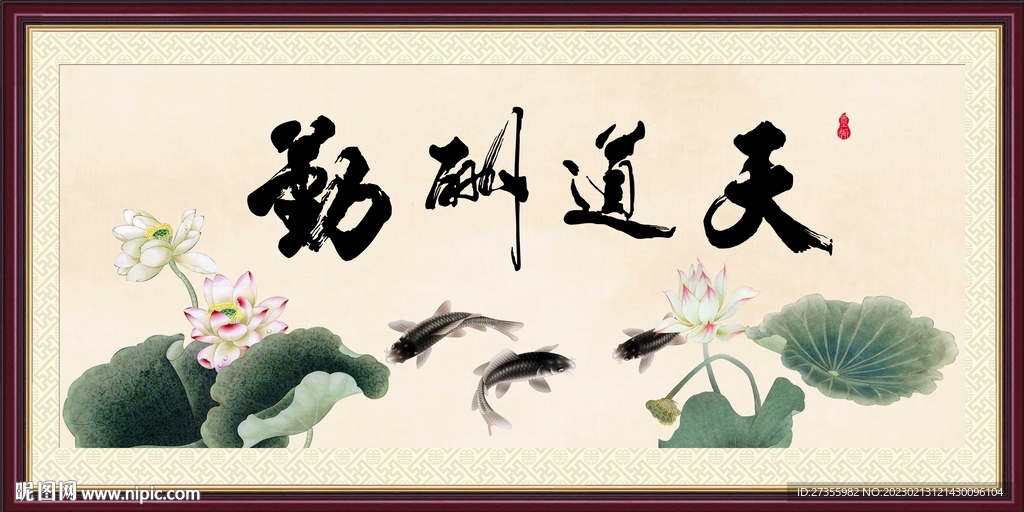 天道酬勤
昵图网 www.nipic.com
ID:27355982 NO:20230213121430096104